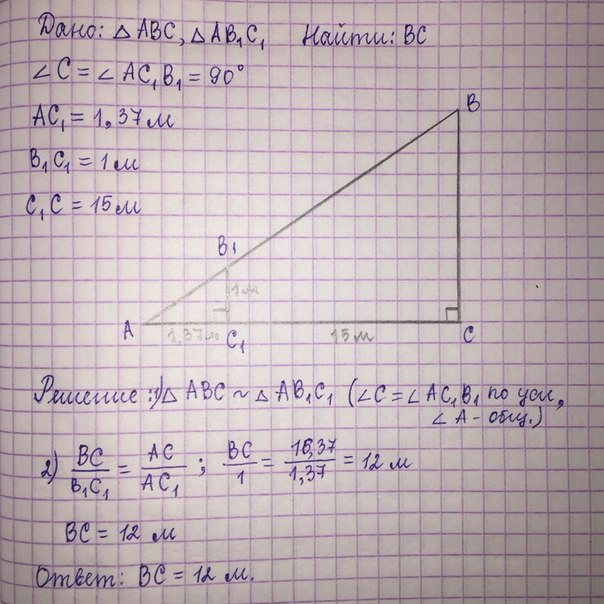 Дано: △ ABC, △ AB₁C₁ Найти: BC
∠C = ∠AC₁B₁ = 90°
AC₁ = 1,37 м
B₁C₁ = 1 м
C₁C = 15 м
B
B₁
1 м
A
1,37 м
C₁
15 м
C
Решение: 1) △ ABC ~ △ AB₁C₁ (∠C = ∠AC₁B₁ по усл,
∠A - общ.)
2) BC/B₁C₁ = AC/AC₁ ; BC/1 = 16,37/1,37 = 12 м
BC = 12 м
Ответ: BC = 12 м.